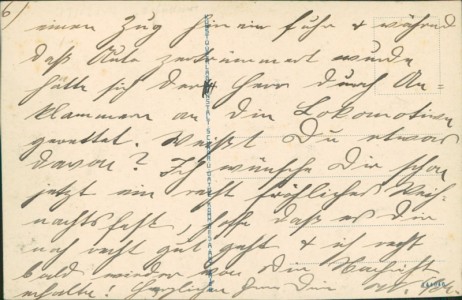 6)
einen Zug hinein fuhr & während
daß Auto zertrümmert wurde
hätte sich der Herr durch An=
klammern an die Lokomotive
gerettet. Weißt Du etwas
davon? Ich wünsche Dir schon
jetzt ein recht fröhliches Weih=
nachtsfest, hoffe daß es Dir
noch recht gut geht & ich recht
bald wieder von Dir Nachricht
erhalte! Herzlichen